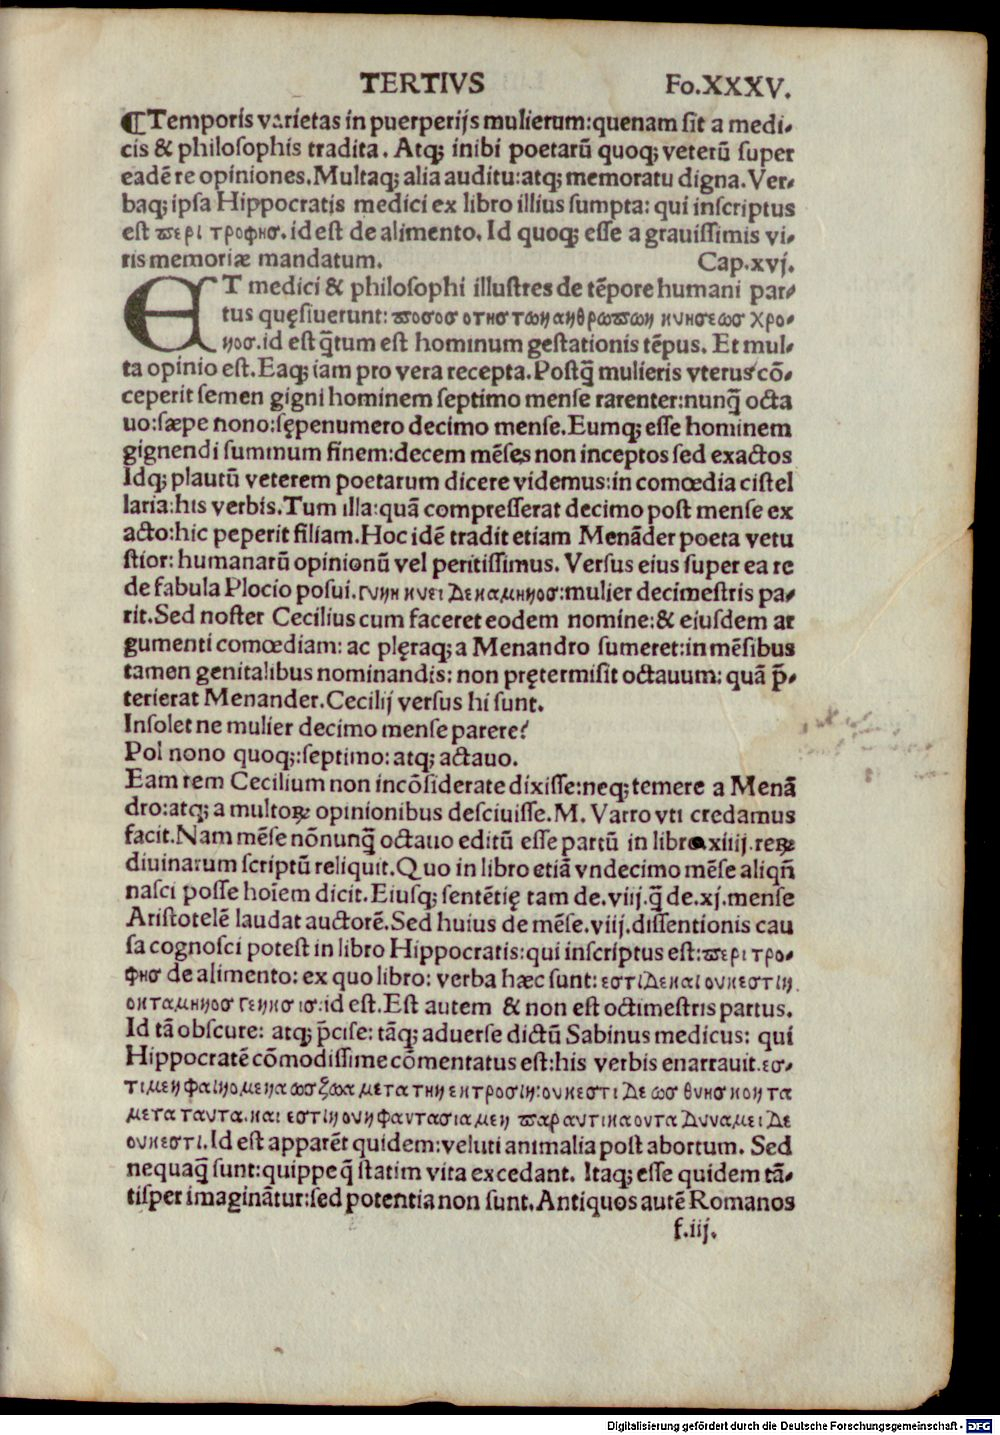 TERTIVS Fo.XXXV.
¶Temporis varietas in puerperijs mulierum:quenam sit a medi-
cis & philosophis tradita. Atq; inibi poetarũ quoq; veterũ super
eadẽ re opiniones.Multaq; alia auditu:atq; memoratu digna.Ver-
baq; ipsa Hippocratis medici ex libro illius sumpta: qui inscriptus
est περι τροφησ.id est de alimento. Id quoq; esse a grauissimis vi-
ris memoriæ mandatum. Cap.xvj.
ET medici & philosophi illustres de tẽpore humani par-
tus quęsiuerunt: ποσοσ οτησ τωη αηθρωπωη κυησεωσ χρο-
ηοσ.id est q̃tum est hominum gestationis tẽpus. Et mul-
ta opinio est.Eaq; iam pro vera recepta.Postq̃ mulieris vterus cõ-
ceperit semen gigni hominem septimo mense rarenter:nunq̃ octa
uo:sæpe nono:sępenumero decimo mense.Eumq; esse hominem
gignendi summum finem:decem mẽses non inceptos sed exactos
Idq; plautũ veterem poetarum dicere videmus:in comœdia cistel
laria:his verbis.Tum illa:quã compresserat decimo post mense ex
acto:hic peperit filiam.Hoc idẽ tradit etiam Menãder poeta vetu
stior: humanarũ opinionũ vel peritissimus. Versus eius super ea re
de fabula Plocio posui.γυηη κυει Δεκαμηηοσ:mulier decimestris pa-
rit.Sed noster Cecilius cum faceret eodem nomine:& eiusdem ar
gumenti comœdiam: ac plęraq; a Menandro sumeret:in mẽsibus
tamen genitalibus nominandis: non prętermisit octauum: quã p̃-
terierat Menander.Cecilij versus hi sunt.
Insolet ne mulier decimo mense parere?
Pol nono quoq;:septimo: atq; actavo.
Eam rem Cecilium non incõsiderate dixisse:neq; temere a Menã
dro:atq; a multoꝝ opinionibus desciuisse.M. Varro vti credamus
facit.Nam mẽse nõnunq̃ octauo editũ esse partũ in libro xiiij.reꝝ
diuinarum scriptũ reliquit.Quo in libro etiã vndecimo mẽse aliqñ
nasci posse hoĩem dicit.Eiusq; sentẽtię tam de.viij.q̃ de.xj.mense
Aristotelẽ laudat auctorẽ.Sed huius de mẽse.viij.dissentionis cau
sa cognosci potest in libro Hippocratis:qui inscriptus est:περι τρο-
φησ de alimento: ex quo libro: verba hæc sunt: εστι Δε και ουκ εστιη.
οκταμηηοσ γεηησισ:id est.Est autem & non est octimestris partus.
Id tã obscure: atq; p̃cise: tãq; aduerse dictũ Sabinus medicus: qui
Hippocratẽ cõmodissime cõmentatus est:his verbis enarrauit.εσ-
τι μεη φαιηομεηα ωσ ζωα μετα τηη εκτροσιη:ουκ εστι Δε ωσ θηησκοητα
μετα ταυτα.και εστιη ουη φαητασια μεη παραυτικα οητα Δυηαμει Δε
ουκ εστι.Id est apparẽt quidem:veluti animalia post abortum. Sed
nequaq̃ sunt:quippe q̃ statim vita excedant. Itaq; esse quidem tã-
tisper imaginãtur:sed potentia non sunt.Antiquos autẽ Romanos
f.iij.
Digitalisierung gefördert durch die Deutsche Forschungsgemeinschaft - DFG